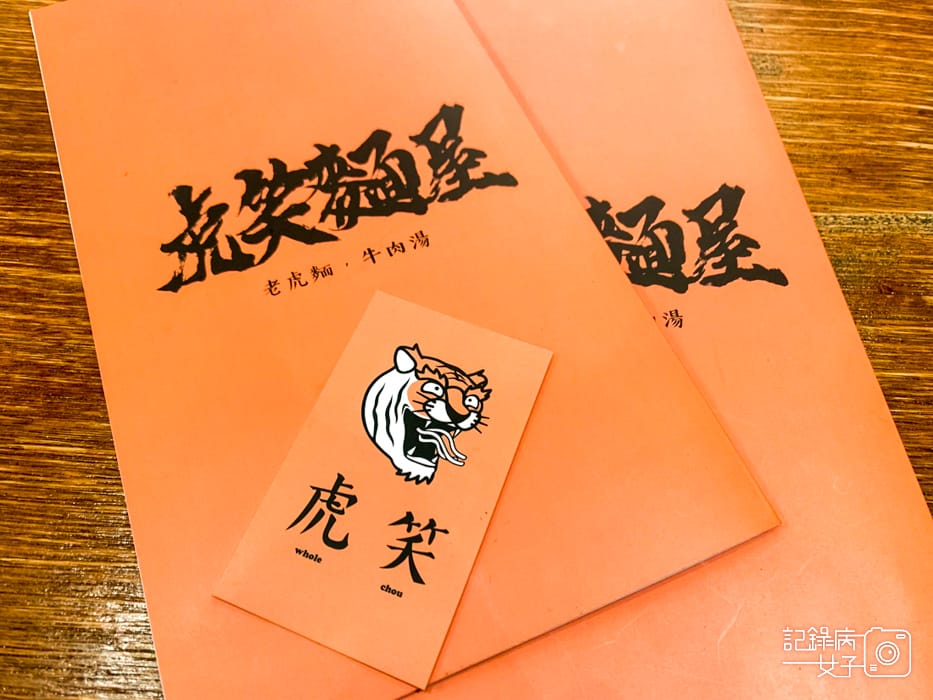 虎笑麵屋
老虎麵，牛肉湯
麵屋
，湯
虎笑
whole
chou
記錄病
女子